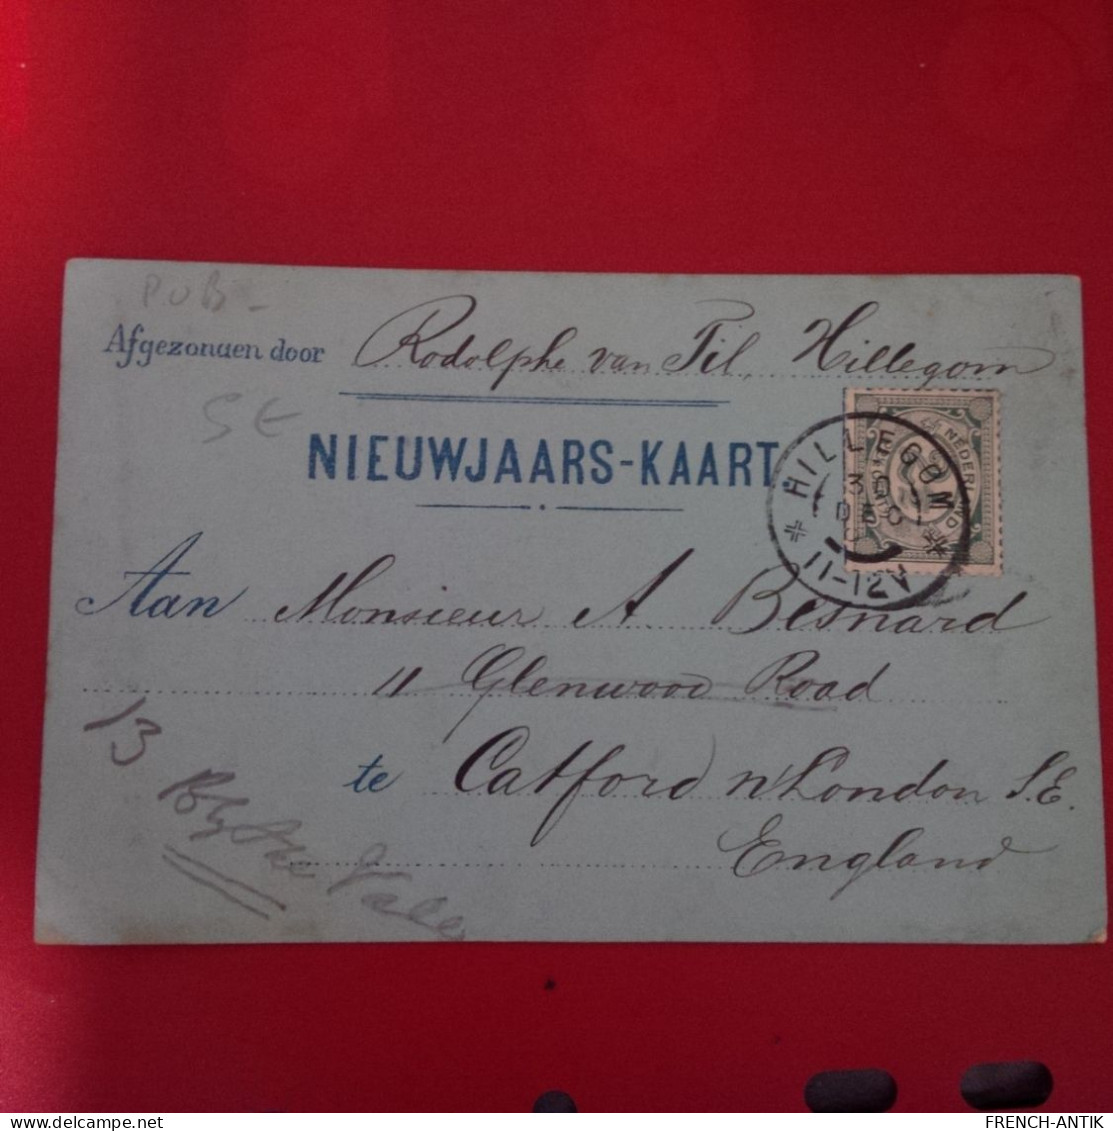 PUB-
Afgezonden door Rodolphe van Til, Hillegom
SE
NIEUWJAARS-KAART
NEDERLAND
HILLEGOM
30
DEC
11-12V
Aan Monsieur A Besnard
11 Glenwood Road
te Catford n/London S.E.
England
13
Blythe Vale
FRENCH-ANTIK